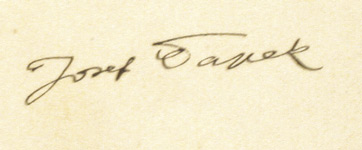 Josef Čapek